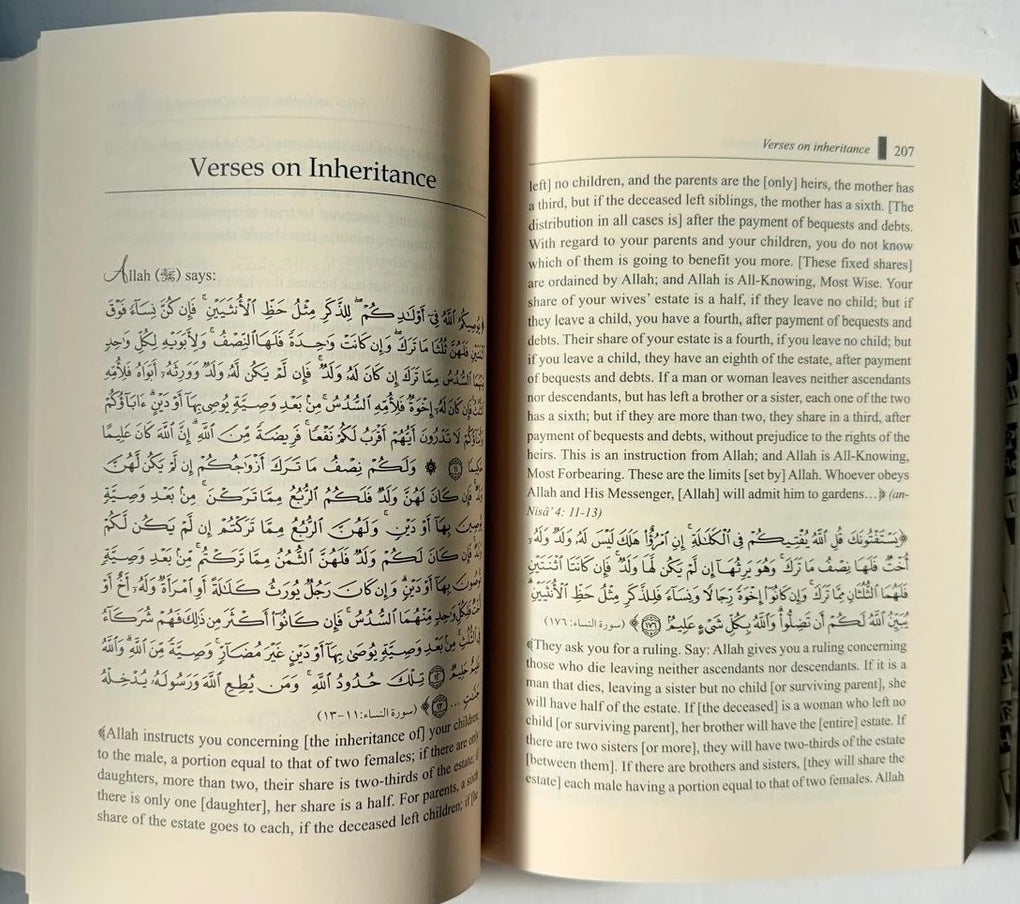 Verses on Inheritance
Allah (ﷻ) says:
﴿يُوصِيكُمُ ٱللَّهُ فِىٓ أَوْلَـٰدِكُمْ ۖ لِلذَّكَرِ مِثْلُ حَظِّ ٱلْأُنثَيَيْنِ ۚ فَإِن كُنَّ نِسَآءً فَوْقَ
ٱثْنَتَيْنِ فَلَهُنَّ ثُلُثَا مَا تَرَكَ ۖ وَإِن كَانَتْ وَٰحِدَةً فَلَهَا ٱلنِّصْفُ ۚ وَلِأَبَوَيْهِ لِكُلِّ وَٰحِدٍ
مِّنْهُمَا ٱلسُّدُسُ مِمَّا تَرَكَ إِن كَانَ لَهُۥ وَلَدٌ ۚ فَإِن لَّمْ يَكُن لَّهُۥ وَلَدٌ وَوَرِثَهُۥٓ أَبَوَاهُ فَلِأُمِّهِ
ٱلثُّلُثُ ۚ فَإِن كَانَ لَهُۥٓ إِخْوَةٌ فَلِأُمِّهِ ٱلسُّدُسُ ۚ مِنۢ بَعْدِ وَصِيَّةٍ يُوصِى بِهَآ أَوْ دَيْنٍ ۗ ءَابَآؤُكُمْ
وَأَبْنَآؤُكُمْ لَا تَدْرُونَ أَيُّهُمْ أَقْرَبُ لَكُمْ نَفْعًا ۚ فَرِيضَةً مِّنَ ٱللَّهِ ۗ إِنَّ ٱللَّهَ كَانَ عَلِيمًا
حَكِيمًا ۝١١ ۞ وَلَكُمْ نِصْفُ مَا تَرَكَ أَزْوَٰجُكُمْ إِن لَّمْ يَكُن لَّهُنَّ
وَلَدٌ ۚ فَإِن كَانَ لَهُنَّ وَلَدٌ فَلَكُمُ ٱلرُّبُعُ مِمَّا تَرَكْنَ ۚ مِنۢ بَعْدِ وَصِيَّةٍ
يُوصِينَ بِهَآ أَوْ دَيْنٍ ۚ وَلَهُنَّ ٱلرُّبُعُ مِمَّا تَرَكْتُمْ إِن لَّمْ يَكُن لَّكُمْ
وَلَدٌ ۚ فَإِن كَانَ لَكُمْ وَلَدٌ فَلَهُنَّ ٱلثُّمُنُ مِمَّا تَرَكْتُم ۚ مِّنۢ بَعْدِ وَصِيَّةٍ
تُوصُونَ بِهَآ أَوْ دَيْنٍ ۗ وَإِن كَانَ رَجُلٌ يُورَثُ كَلَـٰلَةً أَوِ ٱمْرَأَةٌ وَلَهُۥٓ أَخٌ أَوْ
أُخْتٌ فَلِكُلِّ وَٰحِدٍ مِّنْهُمَا ٱلسُّدُسُ ۚ فَإِن كَانُوٓا۟ أَكْثَرَ مِن ذَٰلِكَ فَهُمْ شُرَكَآءُ
فِى ٱلثُّلُثِ ۚ مِنۢ بَعْدِ وَصِيَّةٍ يُوصَىٰ بِهَآ أَوْ دَيْنٍ غَيْرَ مُضَآرٍّ ۚ وَصِيَّةً مِّنَ ٱللَّهِ ۗ وَٱللَّهُ
عَلِيمٌ حَلِيمٌ ۝١٢ تِلْكَ حُدُودُ ٱللَّهِ ۚ وَمَن يُطِعِ ٱللَّهَ وَرَسُولَهُۥ يُدْخِلْهُ
جَنَّـٰتٍ ... ۝١٣﴾ (سورة النساء: ١١-١٣)
﴾Allah instructs you concerning [the inheritance of] your children:
to the male, a portion equal to that of two females; if there are only
daughters, more than two, their share is two-thirds of the estate; if
there is only one [daughter], her share is a half. For parents, a sixth
share of the estate goes to each, if the deceased left children; if [he
Verses on inheritance 207
left] no children, and the parents are the [only] heirs, the mother has
a third, but if the deceased left siblings, the mother has a sixth. [The
distribution in all cases is] after the payment of bequests and debts.
With regard to your parents and your children, you do not know
which of them is going to benefit you more. [These fixed shares]
are ordained by Allah; and Allah is All-Knowing, Most Wise. Your
share of your wives' estate is a half, if they leave no child; but if
they leave a child, you have a fourth, after payment of bequests and
debts. Their share of your estate is a fourth, if you leave no child; but
if you leave a child, they have an eighth of the estate, after payment
of bequests and debts. If a man or woman leaves neither ascendants
nor descendants, but has left a brother or a sister, each one of the two
has a sixth; but if they are more than two, they share in a third, after
payment of bequests and debts, without prejudice to the rights of the
heirs. This is an instruction from Allah; and Allah is All-Knowing,
Most Forbearing. These are the limits [set by] Allah. Whoever obeys
Allah and His Messenger, [Allah] will admit him to gardens…﴿ (an-
Nisâ' 4: 11-13)
﴿يَسْتَفْتُونَكَ قُلِ ٱللَّهُ يُفْتِيكُمْ فِى ٱلْكَلَـٰلَةِ ۚ إِنِ ٱمْرُؤٌا۟ هَلَكَ لَيْسَ لَهُۥ وَلَدٌ وَلَهُۥٓ
أُخْتٌ فَلَهَا نِصْفُ مَا تَرَكَ ۚ وَهُوَ يَرِثُهَآ إِن لَّمْ يَكُن لَّهَا وَلَدٌ ۚ فَإِن كَانَتَا ٱثْنَتَيْنِ
فَلَهُمَا ٱلثُّلُثَانِ مِمَّا تَرَكَ ۚ وَإِن كَانُوٓا۟ إِخْوَةً رِّجَالًا وَنِسَآءً فَلِلذَّكَرِ مِثْلُ حَظِّ ٱلْأُنثَيَيْنِ ۗ
يُبَيِّنُ ٱللَّهُ لَكُمْ أَن تَضِلُّوا۟ ۗ وَٱللَّهُ بِكُلِّ شَىْءٍ عَلِيمٌۢ ۝١٧٦﴾ (سورة النساء: ١٧٦)
﴾They ask you for a ruling. Say: Allah gives you a ruling concerning
those who die leaving neither ascendants nor descendants. If it is a
man that dies, leaving a sister but no child [or surviving parent], she
will have half of the estate. If [the deceased] is a woman who left no
child [or surviving parent], her brother will have the [entire] estate. If
there are two sisters [or more], they will have two-thirds of the estate
[between them]. If there are brothers and sisters, [they will share the
estate] each male having a portion equal to that of two females. Allah